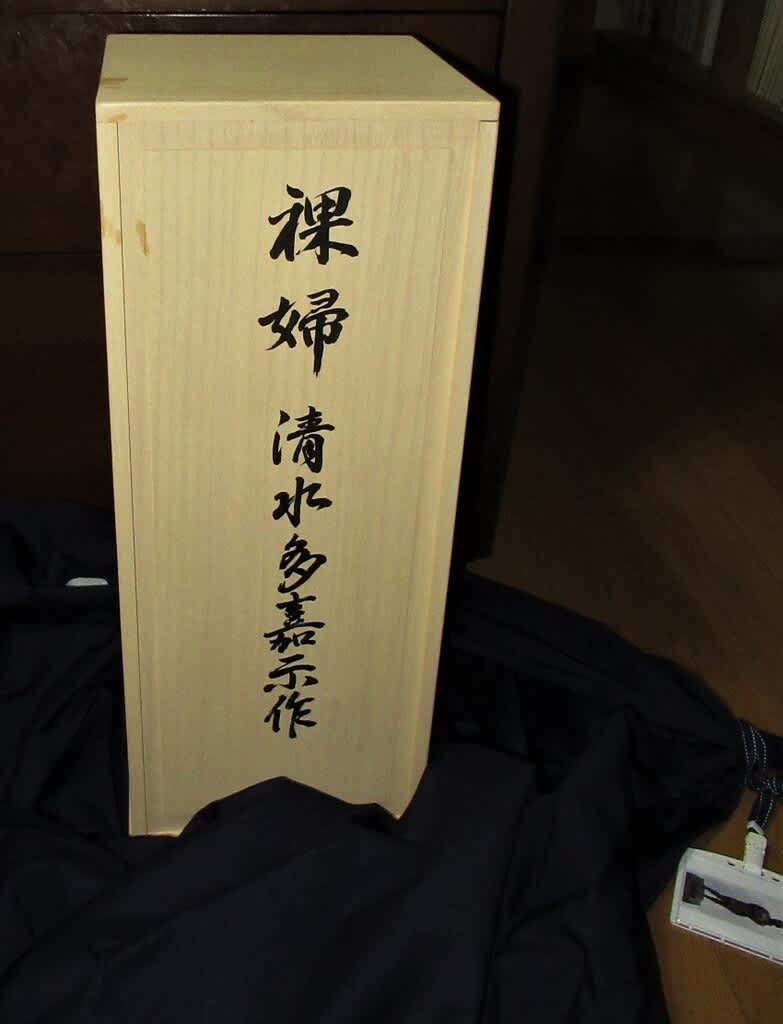 裸婦 清水多嘉示作